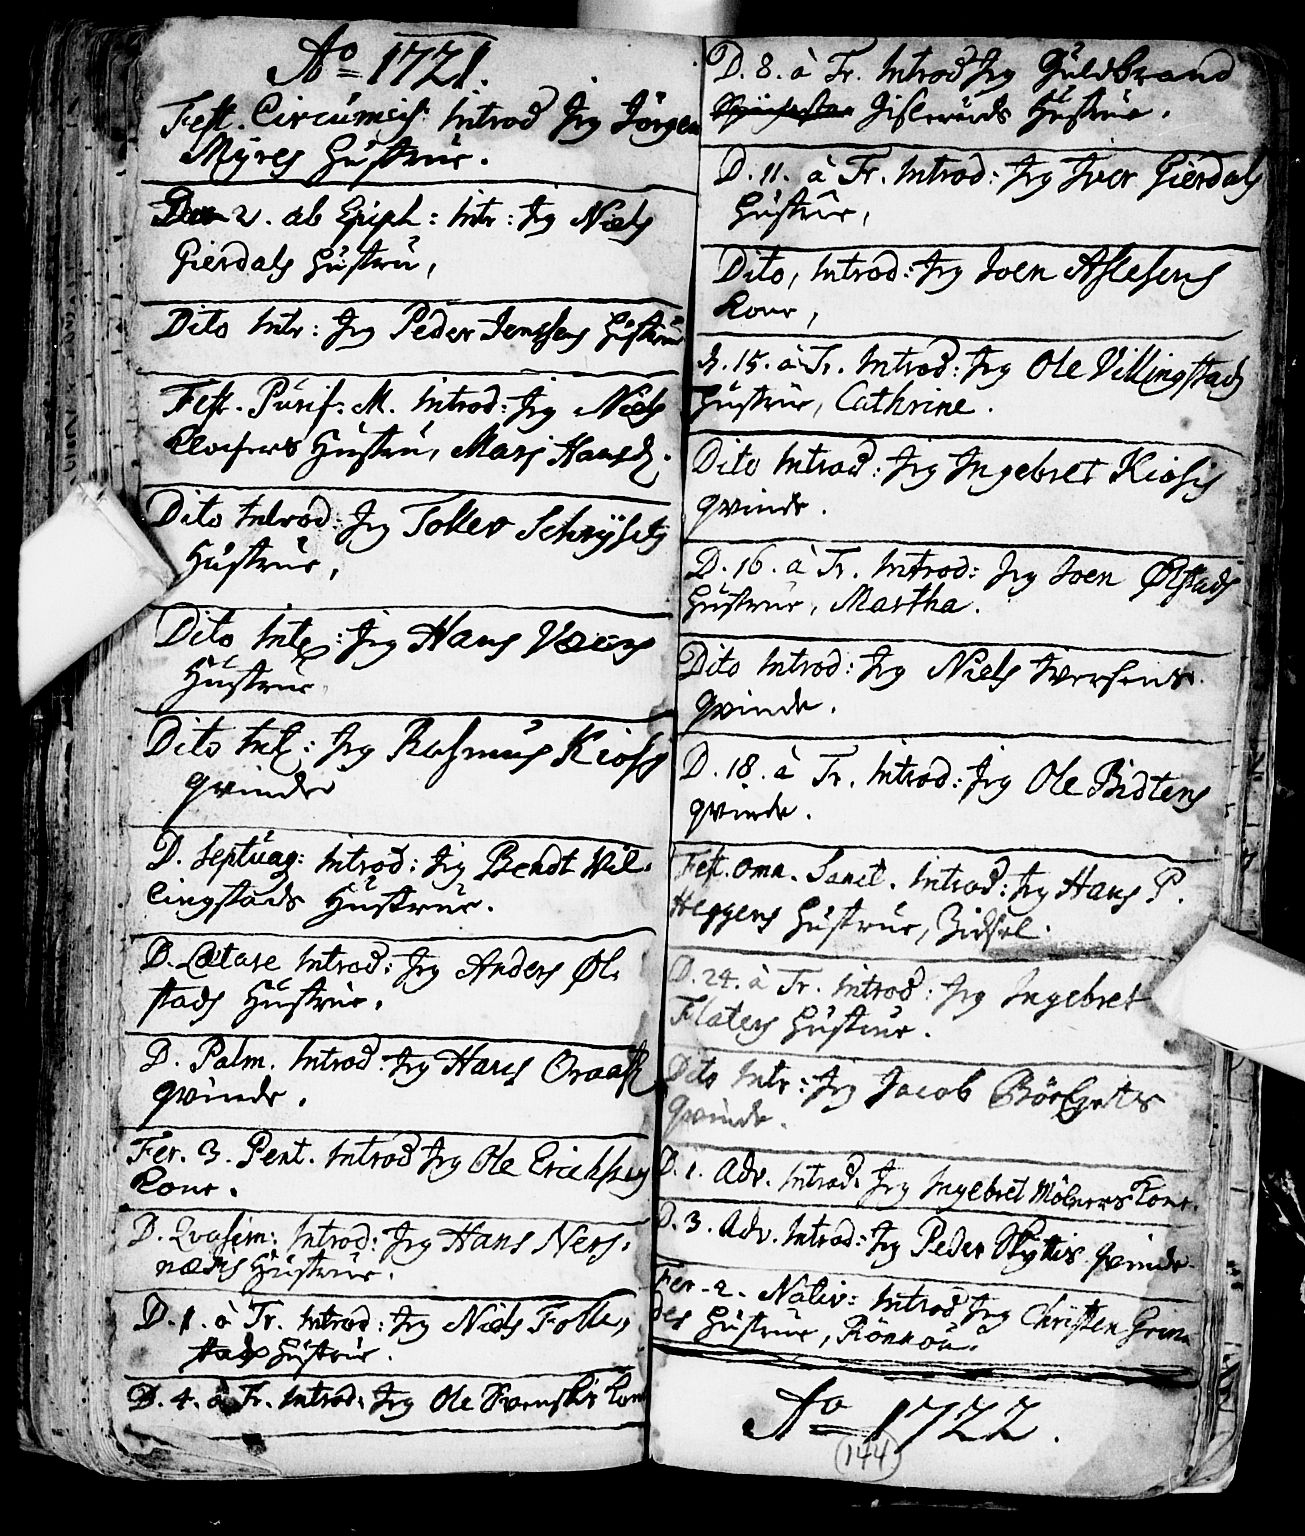 Ao 1721.
Fest. Circúmcis: Introd Jeg Jörgen
Myres Hustrue.
Dom 2. ab Epiph: Intr: Jeg Niels
Gierdals Hustru,
Dito Intr: Jeg Peder Jenssens Hustrue
Fest. Púrif: M. Introd: Jeg Niels
Klochers Hustru, Mari Hansd.
Dito Introd: Jeg Tollev
Hustrue,
Dito Intr: Jeg Hans
Hustrue
Dito Int: Jeg Rasmus Kioss
qvinde
D. Septúag: Introd: Jeg Bendt Wil-
lingstads Hustrue.
D. Lætare Introd: Jeg Anders Øl-
stads Hustrue.
D. Palm. Introd: Jeg Hans Oraas
qvinde.
Fer. 3. Pent. Introd Jeg Ole Erichsens
Kone.
D. Qvasim: Introd: Jeg Hans Ners-
næs Hustrue.
D. 1. à Tr. Introd: Jeg Niels Folle-
stads Hustrue.
D. 4. à Tr. Introd: Jeg Ole Svenskis Kone
D. 8. à Tr. Introd Jeg Guldbrand
Gislerúds Hustrue.
D. 11. à Tr. Introd: Jeg Iver Gierdals
Hustrue,
Dito, Introd: Jeg Joen Aslesens
Kone,
D. 15. à Tr. Introd: Jeg Ole Villingstads
Hustrue, Cathrine.
Dito Introd: Jeg Ingebret Kiosis
qvinde.
D. 16. à Tr. Introd: Jeg Joen Ølstads
Hustrue, Martha.
Dito Introd: Jeg Niels Iversens
qvinde.
D. 18. à Tr. Introd: Jeg Ole Bidtens
qvinde.
Fest. Omn. Sanct. Introd: Jeg Hans P.
Heggens Hustrue, Zidsel.
D. 24. à Tr. Introd: Jeg Ingebret
Flatens Hustrue.
Dito Intr: Jeg Jacob
Qvinde.
D. 1. Adv. Introd: Jeg Ingebret Mölners Kone.
D. 3. Adv. Introd: Jeg Peder Skyttis qvinde.
Fer. 2. Nativ: Introd Jeg Christen Grim
des Hustrue, Rönnou.
Ao 1722.
144